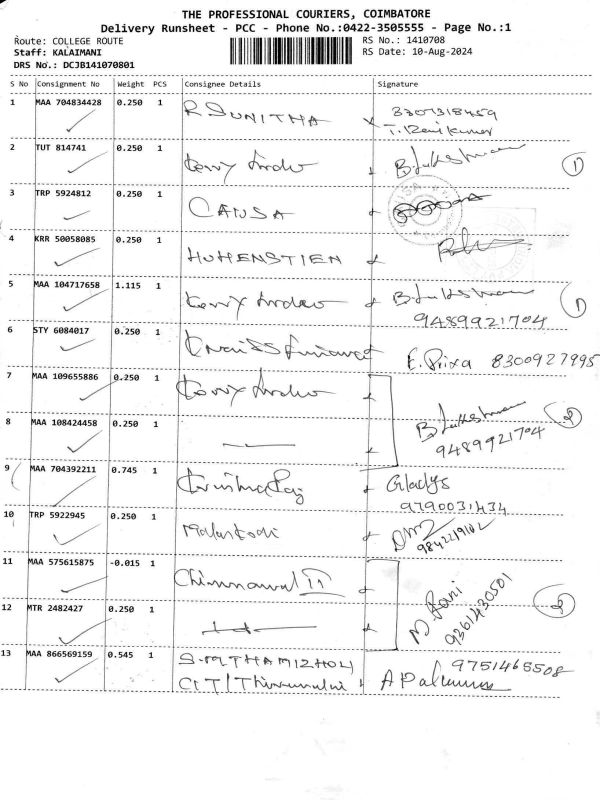 THE PROFESSIONAL COURIERS, COIMBATORE
Delivery Runsheet - PCC - Phone No.:0422-3505555 - Page No.:1
Route: COLLEGE ROUTE RS No.: 1410708
Staff: KALAIMANI RS Date: 10-Aug-2024
DRS No.: DCJB141070801
S No Consignment No Weight PCS Consignee Details Signature
1 MAA 704834428 0.250 1 R SUNITHA 8307318459
2 TUT 814741 0.250 1 1
3 TRP 5924812 0.250 1
4 KRR 50058085 0.250 1 HOHENSTIEN
5 MAA 104717658 1.115 1 1
9489921704
6 STY 6084017 0.250 1 E. Prixa 8300927995
7 MAA 109655886 0.250 1
8 MAA 108424458 0.250 1 2
9489921704
9 MAA 704392211 0.745 1 Gladys
9790031434
10 TRP 5922945 0.250 1 Malarkodi
9842219102
11 MAA 575615875 -0.015 1 II M. Rani
9361430501
12 MTR 2482427 0.250 1 2
13 MAA 866569159 0.545 1 S.M THAMIZHOLI 9751465508